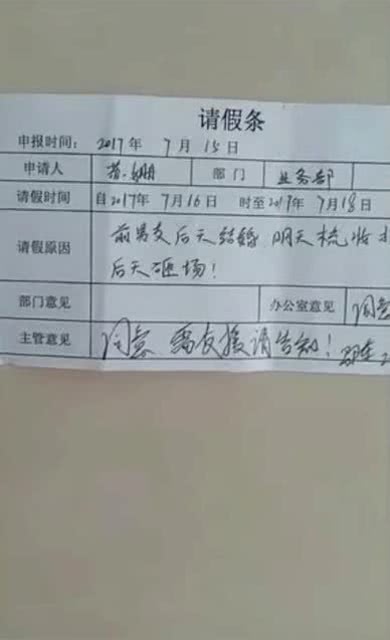 请假条
申报时间: 2017年 7月 15日
申请人 苏 部门 业务部
请假时间 自2017年 7月16日 时至2017年 7月18日
请假原因 前男友后天结婚 明天梳妆
后天砸场!
部门意见 办公室意见 同意
主管意见 同意 需支援请告知!